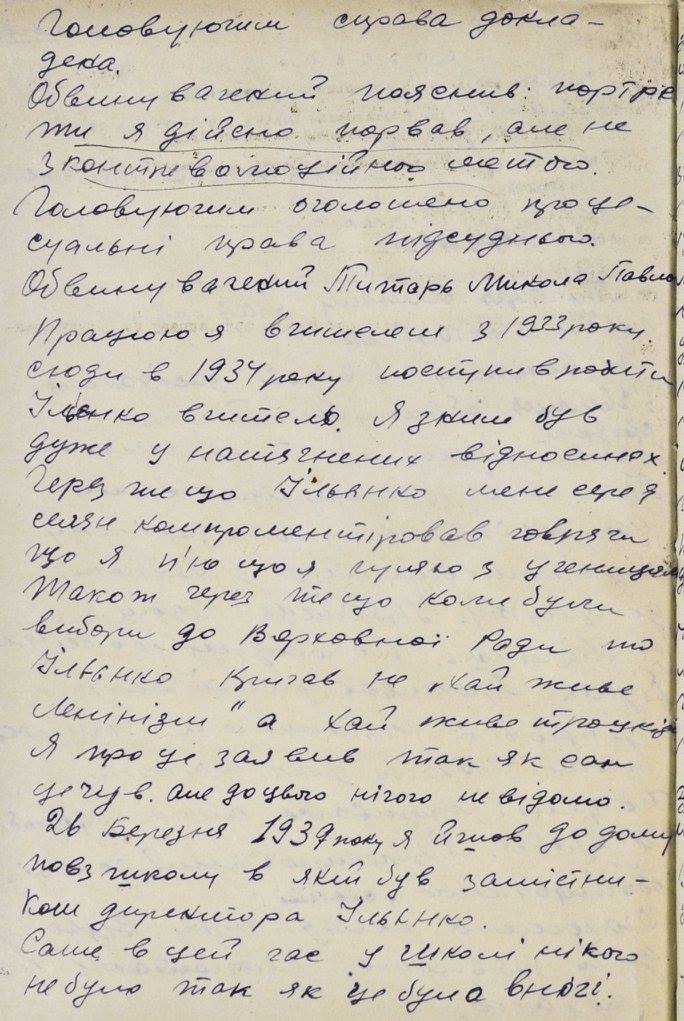 Головуючим справа докла-
дена.
Обвинувачений пояснив: портре
ти я дійсно порвав, але не
з контреволюційною метою.
Головуючим оголошено проце-
суальні права підсудного.
Обвинувачений Титарь Микола Павло
Працюю я вчителем з 1933 року.
сюди в 1934 року поступив робити
Ільенко вчителем. Я з ким був
дуже у натягнених відносинах.
Через те що Ільенко мене серед
селян компроментіровав говрячи
що я п'ю що я гуляю з ученицями
Також через те що коли були
вибори до Верховної Ради то
Ільенко кричав не "хай живе
Ленінізм" а хай живе троцкізм
Я про це заявив так як сам
це чув. але до цього нічого невідомо.
26 Березня 1939 року я йшов до дому
повз школу в якій був замістни-
ком директора Ільенко.
Саме в цей час у школі нікого
небуло так як це була вночі.